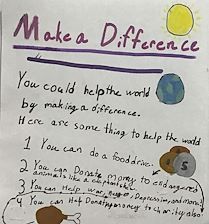 Make a Difference
You could help the world
by making a difference.
Here are some thing to help the world
1 You can do a food drive.
2 You can Donate money to endangered
animals like a chipmunk
3 You can Help war, Depression, and more
4 You can Help Donating money to charity also
$